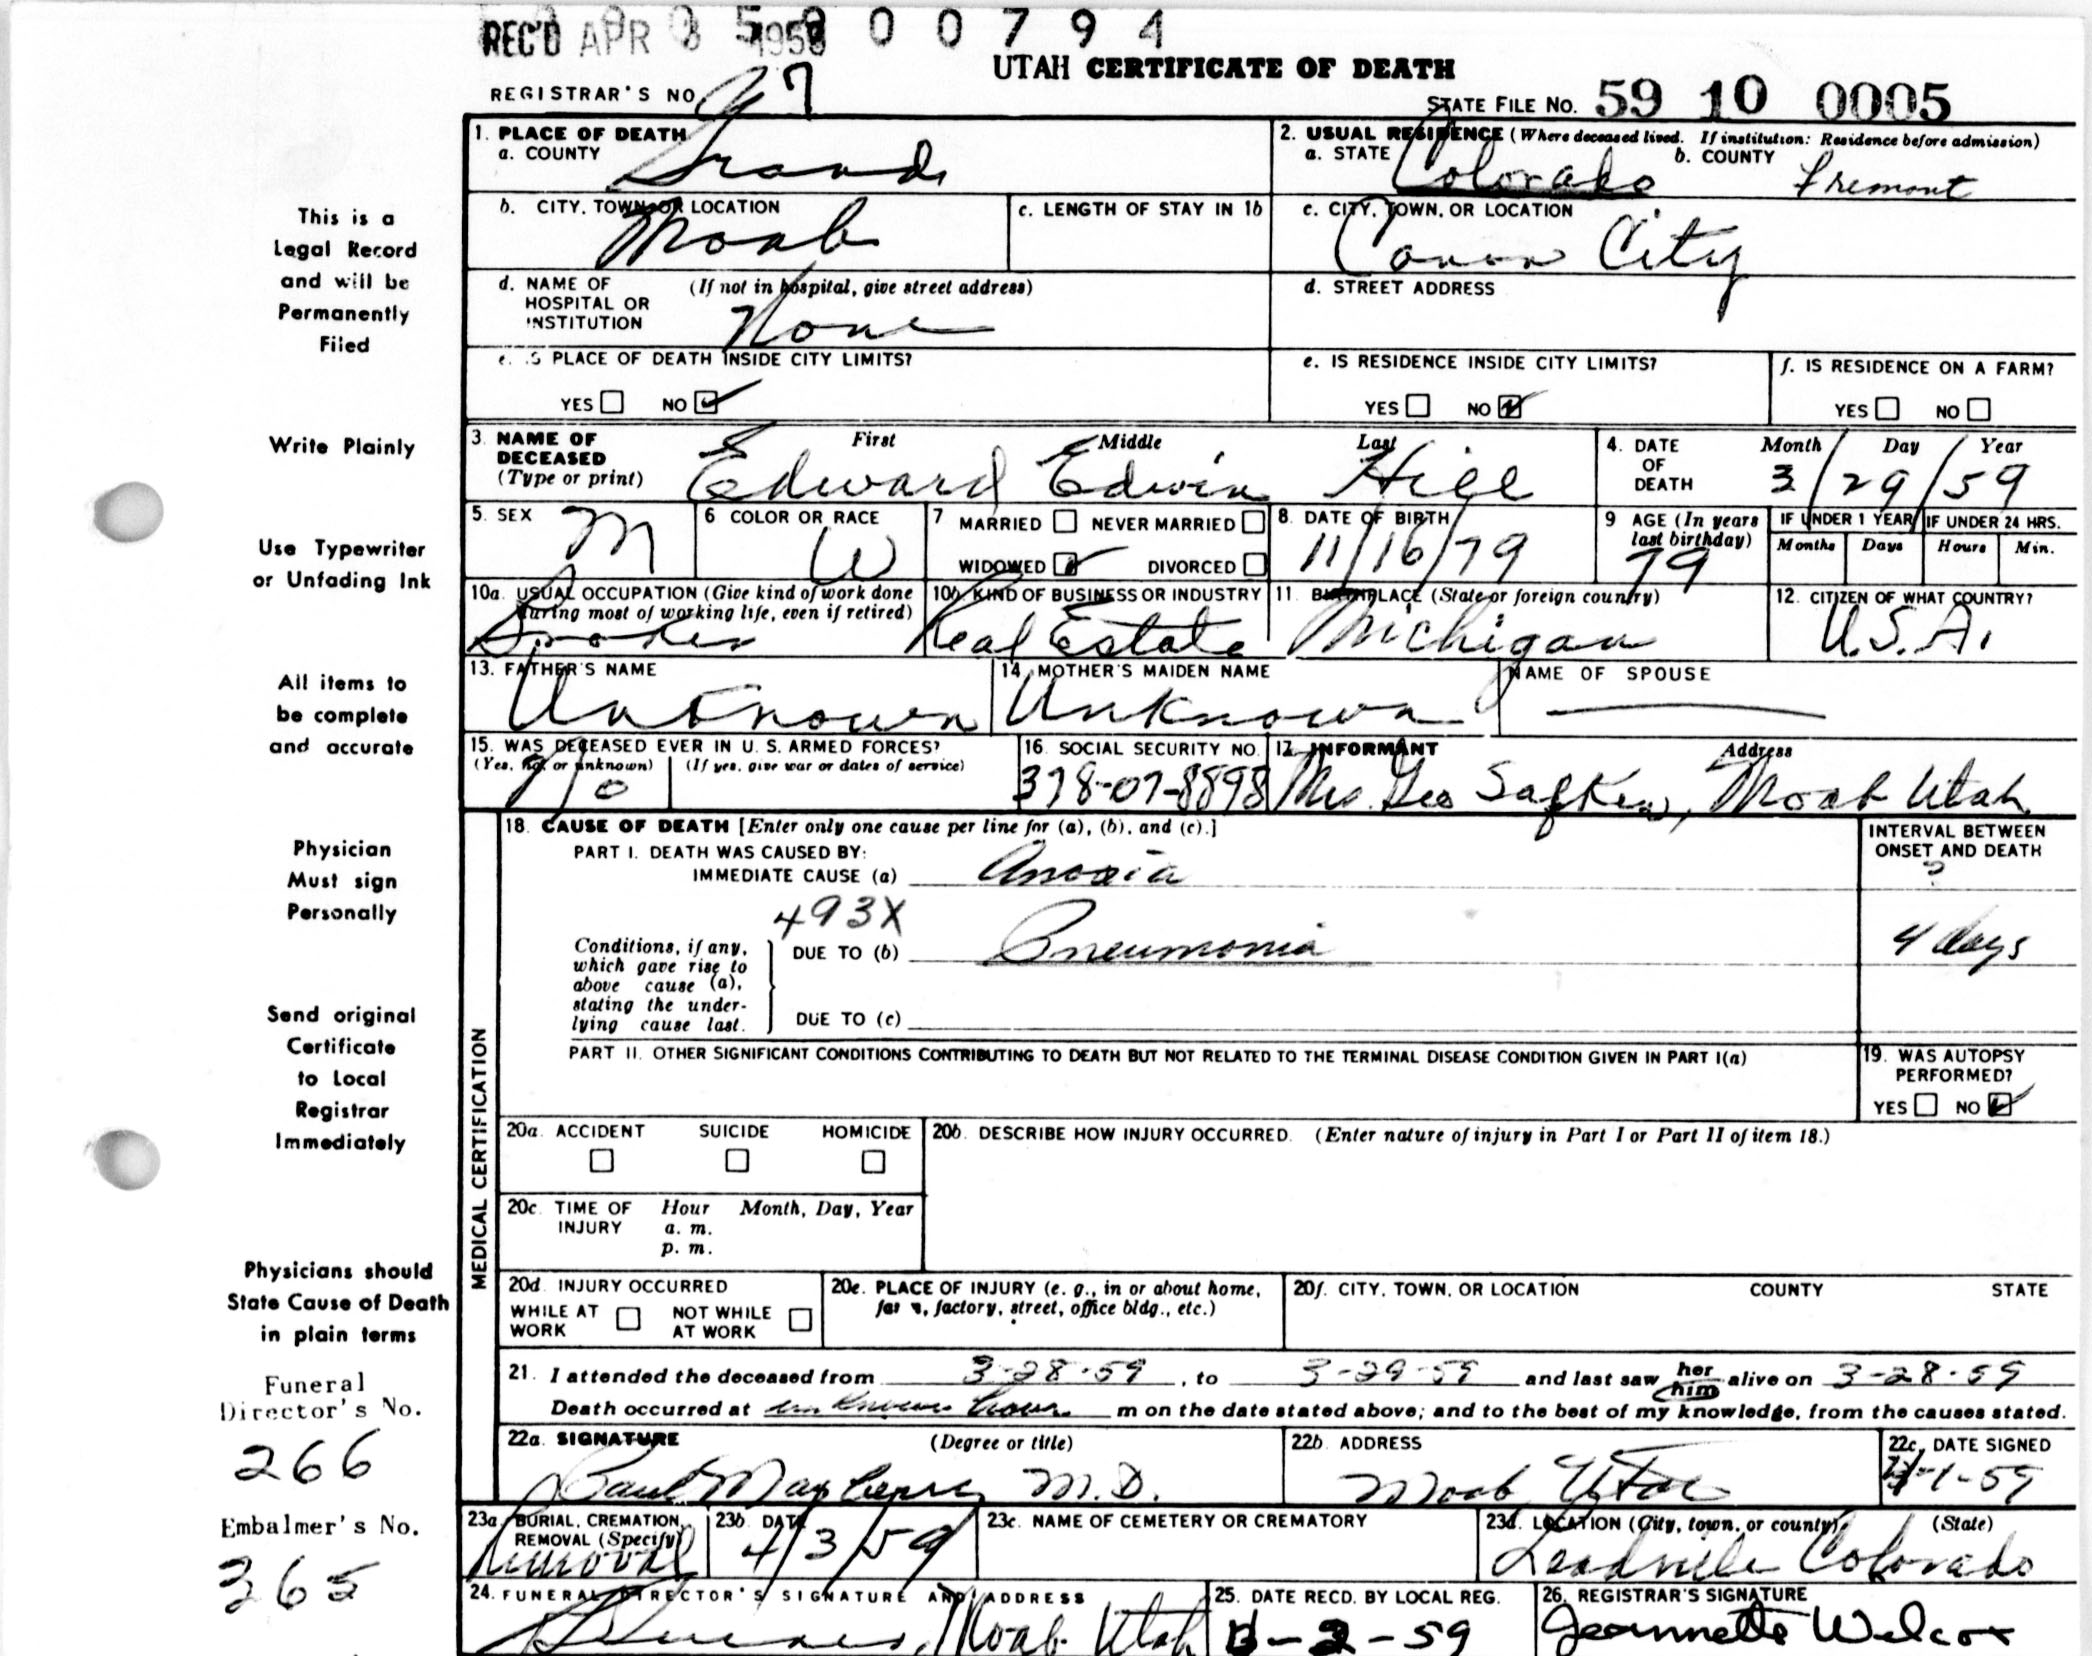 REC'D APR 8 1959 0 0 7 9 4
UTAH CERTIFICATE OF DEATH
REGISTRAR'S NO 97
STATE FILE NO. 59 10 0005
1. PLACE OF DEATH
a. COUNTY Grand
2. USUAL RESIDENCE (Where deceased lived. If institution: Residence before admission)
a. STATE Colorado b. COUNTY Fremont
b. CITY, TOWN, OR LOCATION Moab
c. LENGTH OF STAY IN 1b
c. CITY, TOWN, OR LOCATION
Canon City
d. NAME OF HOSPITAL OR INSTITUTION (If not in hospital, give street address)
None
d. STREET ADDRESS
e. IS PLACE OF DEATH INSIDE CITY LIMITS?
YES NO
e. IS RESIDENCE INSIDE CITY LIMITS?
YES NO
f. IS RESIDENCE ON A FARM?
YES NO
3. NAME OF DECEASED (Type or print)
First Middle Last
Edward Edwin Hill
4. DATE OF DEATH
Month Day Year
3/29/59
5. SEX M
6 COLOR OR RACE W
7 MARRIED NEVER MARRIED
WIDOWED DIVORCED
8. DATE OF BIRTH
11/16/79
9 AGE (In years last birthday)
79
IF UNDER 1 YEAR
Months Days
IF UNDER 24 HRS.
Hours Min.
10a. USUAL OCCUPATION (Give kind of work done
during most of working life, even if retired)
10b. KIND OF BUSINESS OR INDUSTRY
Real Estate
11. BIRTHPLACE (State or foreign country)
Michigan
12. CITIZEN OF WHAT COUNTRY?
U.S.A.
13. FATHER'S NAME
Unknown
14. MOTHER'S MAIDEN NAME
Unknown
NAME OF SPOUSE
15. WAS DECEASED EVER IN U. S. ARMED FORCES?
(Yes, no, or unknown) (If yes, give war or dates of service)
No
16. SOCIAL SECURITY NO.
378-07-8898
17. INFORMANT Address
Mrs. Geo Safken, Moab Utah
MEDICAL CERTIFICATION
18. CAUSE OF DEATH [Enter only one cause per line for (a), (b), and (c).]
PART I. DEATH WAS CAUSED BY:
IMMEDIATE CAUSE (a) Anoxia
INTERVAL BETWEEN
ONSET AND DEATH
?
493X
Conditions, if any,
which gave rise to
above cause (a),
stating the under-
lying cause last.
DUE TO (b) Pneumonia 4 days
DUE TO (c)
PART II. OTHER SIGNIFICANT CONDITIONS CONTRIBUTING TO DEATH BUT NOT RELATED TO THE TERMINAL DISEASE CONDITION GIVEN IN PART I(a)
19. WAS AUTOPSY
PERFORMED?
YES NO
20a. ACCIDENT SUICIDE HOMICIDE
20b. DESCRIBE HOW INJURY OCCURRED. (Enter nature of injury in Part I or Part II of item 18.)
20c. TIME OF INJURY
Hour Month, Day, Year
a. m.
p. m.
20d. INJURY OCCURRED
WHILE AT WORK NOT WHILE AT WORK
20e. PLACE OF INJURY (e. g., in or about home,
farm, factory, street, office bldg., etc.)
20f. CITY, TOWN, OR LOCATION COUNTY STATE
21. I attended the deceased from 3-28-59, to 3-29-59 and last saw her him alive on 3-28-59
Death occurred at unknown hour m on the date stated above; and to the best of my knowledge, from the causes stated.
22a. SIGNATURE (Degree or title)
Paul Mayberry M.D.
22b. ADDRESS
Moab Utah
22c. DATE SIGNED
4-1-59
23a. BURIAL, CREMATION, REMOVAL (Specify)
Removal
23b. DATE
4/3/59
23c. NAME OF CEMETERY OR CREMATORY
23d. LOCATION (City, town, or county) (State)
Leadville Colorado
24. FUNERAL DIRECTOR'S SIGNATURE AND ADDRESS
Moab Utah
25. DATE RECD. BY LOCAL REG.
-2-59
26. REGISTRAR'S SIGNATURE
Jeannette Welcox
This is a
Legal Record
and will be
Permanently
Filed
Write Plainly
Use Typewriter
or Unfading Ink
All items to
be complete
and accurate
Physician
Must sign
Personally
Send original
Certificate
to Local
Registrar
Immediately
Physicians should
State Cause of Death
in plain terms
Funeral
Director's No.
266
Embalmer's No.
365